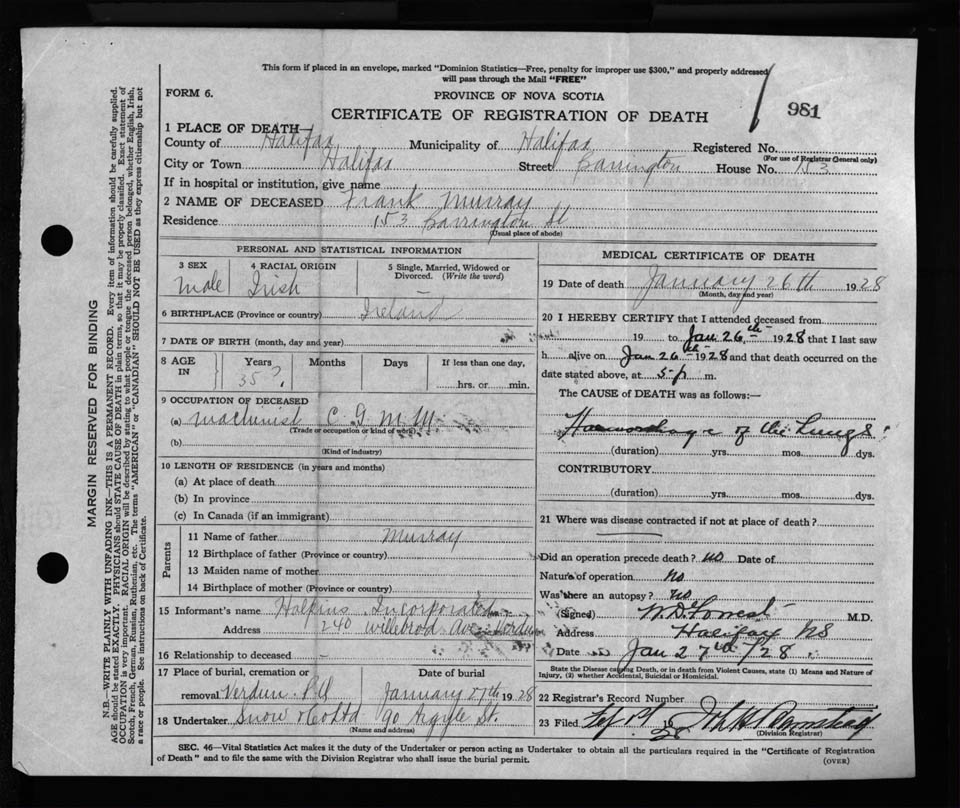 This form if placed in an envelope, marked "Dominion Statistics—Free, penalty for improper use $300," and properly addressed
will pass through the Mail "FREE"
FORM 6.
PROVINCE OF NOVA SCOTIA
981
CERTIFICATE OF REGISTRATION OF DEATH
1 PLACE OF DEATH—
County of Halifax Municipality of Halifax Registered No.
(For use of Registrar General only)
City or Town Halifax Street Barrington House No. 153
If in hospital or institution, give name
2 NAME OF DECEASED Frank Murray
Residence 153 Barrington St
(Usual place of abode)
PERSONAL AND STATISTICAL INFORMATION
3 SEX 4 RACIAL ORIGIN 5 Single, Married, Widowed or
Divorced. (Write the word)
Male Irish
6 BIRTHPLACE (Province or country) Ireland
7 DATE OF BIRTH (month, day and year)
8 AGE IN Years Months Days If less than one day,
35? hrs. or min.
9 OCCUPATION OF DECEASED
(a) Machinist C.G.M.M.
(Trade or occupation or kind of work)
(b)
(Kind of industry)
10 LENGTH OF RESIDENCE (in years and months)
(a) At place of death
(b) In province
(c) In Canada (if an immigrant)
Parents
11 Name of father Murray
12 Birthplace of father (Province or country)
13 Maiden name of mother
14 Birthplace of mother (Province or country)
15 Informant's name Halpins Incorporated
Address 240 Willebrod Ave Verdun
16 Relationship to deceased —
17 Place of burial, cremation or Date of burial
removal Verdun January 27th 1928
18 Undertaker Snow & Co Ltd 90 Argyle St.
(Name and address)
MEDICAL CERTIFICATE OF DEATH
19 Date of death January 26th 1928
(Month, day and year)
20 I HEREBY CERTIFY that I attended deceased from
19 to Jan 26th 1928 that I last saw
h alive on Jan 26th 1928 and that death occurred on
date stated above, at 5 p m.
The CAUSE of DEATH was as follows:—
Haemorrhage of the Lungs
(duration) yrs. mos. dys.
CONTRIBUTORY
(duration) yrs. mos. dys.
21 Where was disease contracted if not at place of death?
Did an operation precede death? No Date of
Nature of operation No
Was there an autopsy? No
(Signed) W D Forrest M.D.
Address Halifax NS
Date Jan 27th/28
State the Disease causing Death, or in death from Violent Causes, state (1) Means and Nature of
Injury, (2) whether Accidental, Suicidal or Homicidal.
22 Registrar's Record Number
23 Filed 19 28
(Division Registrar)
SEC. 46—Vital Statistics Act makes it the duty of the Undertaker or person acting as Undertaker to obtain all the particulars required in the "Certificate of Registration
of Death" and to file the same with the Division Registrar who shall issue the burial permit.
(OVER)
MARGIN RESERVED FOR BINDING
N.B.—WRITE PLAINLY WITH UNFADING INK—THIS IS A PERMANENT RECORD. Every item of information should be carefully supplied.
AGE should be stated EXACTLY. PHYSICIANS should STATE CAUSE OF DEATH in plain terms, so that it may be properly classified. Exact statement of
OCCUPATION is very important. RACIAL ORIGIN will be described by stating to what people or tongue the deceased person belonged, whether English, Irish,
Scotch, French, German, Russian, Ruthenian, etc. The terms "AMERICAN" or "CANADIAN" SHOULD NOT BE USED as they express citizenship but not
a race or people. See instructions on back of Certificate.